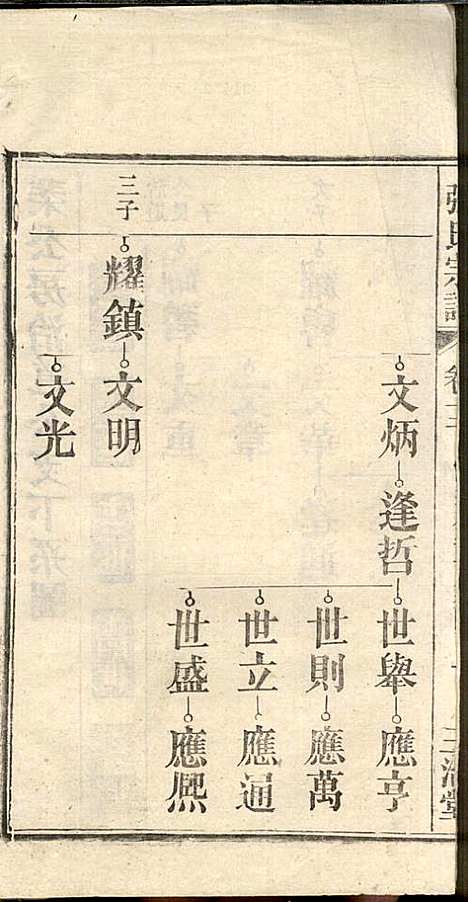 張氏宗譜
文炳
逢哲
世舉
應亨
世則
應萬
世立
應通
世盛
應熙
三子
耀鎮
文明
文光